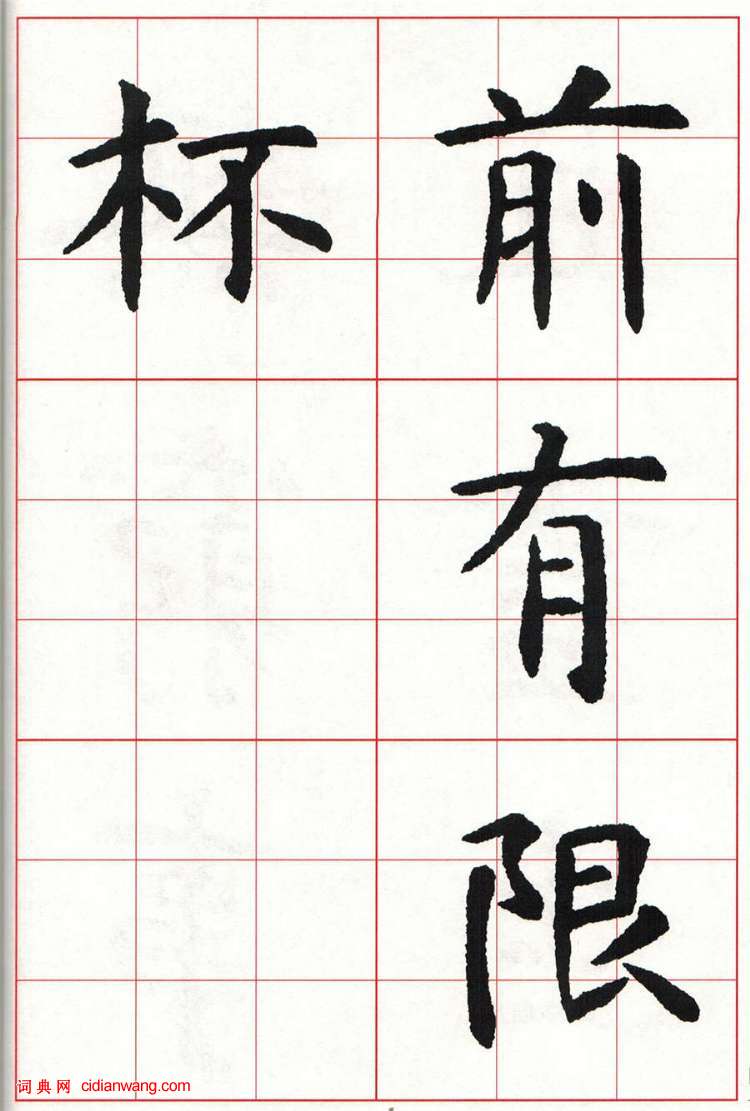 前有限
杯
词典网 cidianwang.com